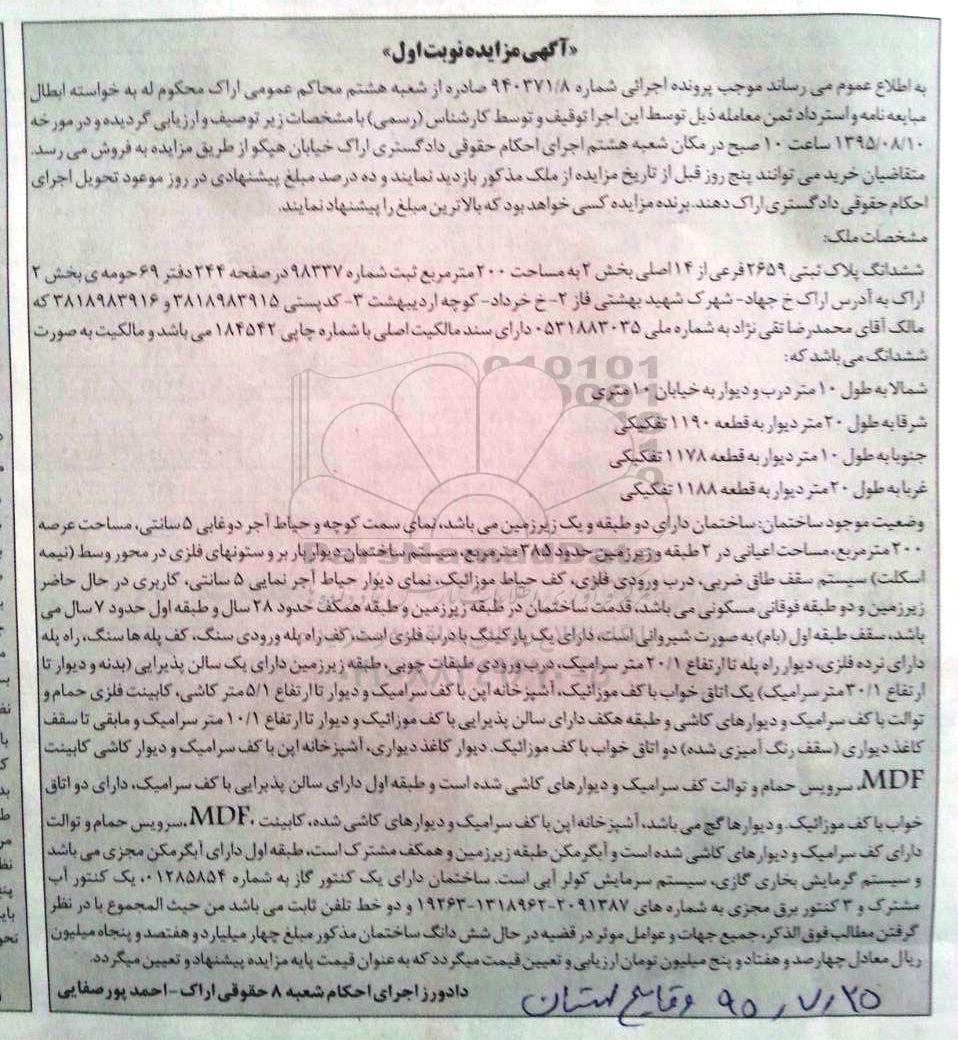 «آگهی مزایده نوبت اول»
به اطلاع عموم می رساند موجب پرونده اجرائی شماره ۹۴۰۳۷۱/۸ صادره از شعبه هشتم محاکم عمومی اراک محکوم له به خواسته ابطال
مبایعه نامه و استرداد ثمن معامله ذیل توسط این اجرا توقیف و توسط کارشناس (رسمی) با مشخصات زیر توصیف و ارزیابی گردیده و در مورخه
۱۳۹۵/۰۸/۱۰ ساعت ۱۰ صبح در مکان شعبه هشتم اجرای احکام حقوقی دادگستری اراک خیابان هپکو از طریق مزایده به فروش می رسد.
متقاضیان خرید می توانند پنج روز قبل از تاریخ مزایده از ملک مذکور بازدید نمایند و ده درصد مبلغ پیشنهادی در روز موعود تحویل اجرای
احکام حقوقی دادگستری اراک دهند. برنده مزایده کسی خواهد بود که بالاترین مبلغ را پیشنهاد نمایند.
مشخصات ملک:
ششدانگ پلاک ثبتی ۲۶۵۹ فرعی از ۱۴ اصلی بخش ۲ به مساحت ۲۰۰ متر مربع ثبت شماره ۹۸۳۳۷ در صفحه ۲۴۴ دفتر ۶۹ حومه ی بخش ۲
اراک به آدرس اراک خ جهاد- شهرک شهید بهشتی فاز ۲- خ خرداد- کوچه اردیبهشت ۳- کدپستی ۳۸۱۸۹۸۳۹۱۵ و ۳۸۱۸۹۸۳۹۱۶ که
مالک آقای محمدرضا تقی نژاد به شماره ملی ۰۵۳۱۸۸۳۰۳۵ دارای سند مالکیت اصلی با شماره چاپی ۱۸۴۵۴۲ می باشد و مالکیت به صورت
ششدانگ می باشد که:
شمالا به طول ۱۰ متر درب و دیوار به خیابان ۱۰ متری
شرقا به طول ۲۰ متر دیوار به قطعه ۱۱۹۰ تفکیکی
جنوبا به طول ۱۰ متر دیوار به قطعه ۱۱۷۸ تفکیکی
غربا به طول ۲۰ متر دیوار به قطعه ۱۱۸۸ تفکیکی
وضعیت موجود ساختمان: ساختمان دارای دو طبقه و یک زیرزمین می باشد، نمای سمت کوچه و حیاط آجر دوغابی ۵ سانتی، مساحت عرصه
۲۰۰ مترمربع، مساحت اعیانی در ۲ طبقه و زیرزمین حدود ۳۸۵ مترمربع، سیستم ساختمان دیوار باربر و ستونهای فلزی در محور وسط (نیمه
اسکلت) سیستم سقف طاق ضربی، درب ورودی فلزی، کف حیاط موزائیک، نمای دیوار حیاط آجر نمایی ۵ سانتی، کاربری در حال حاضر
زیرزمین و دو طبقه فوقانی مسکونی می باشد، قدمت ساختمان در طبقه زیرزمین و طبقه همکف حدود ۲۸ سال و طبقه اول حدود ۷ سال می
باشد، سقف طبقه اول (بام) به صورت شیروانی است، دارای یک پارکینگ با درب فلزی است، کف راه پله ورودی سنگ، کف پله ها سنگ، راه پله
دارای نرده فلزی، دیوار راه پله تا ارتفاع ۲۰/۱ متر سرامیک، درب ورودی طبقات چوبی، طبقه زیرزمین دارای یک سالن پذیرایی (بدنه و دیوار تا
ارتفاع ۳۰/۱ متر سرامیک) یک اتاق خواب با کف موزائیک، آشپزخانه اپن با کف سرامیک و دیوار تا ارتفاع ۵/۱ متر کاشی، کابینت فلزی حمام و
توالت با کف سرامیک و دیوارهای کاشی و طبقه هکف دارای سالن پذیرایی با کف موزائیک و دیوار تا ارتفاع ۱۰/۱ متر سرامیک و مابقی تا سقف
کاغذ دیواری (سقف رنگ آمیزی شده) دو اتاق خواب با کف موزائیک. دیوار کاغذ دیواری، آشپزخانه اپن با کف سرامیک و دیوار کاشی کابینت
MDF، سرویس حمام و توالت کف سرامیک و دیوارهای کاشی شده است و طبقه اول دارای سالن پذیرایی با کف سرامیک، دارای دو اتاق
خواب با کف موزائیک. و دیوارها گچ می باشد، آشپزخانه اپن با کف سرامیک و دیوارهای کاشی شده، کابینت MDF، سرویس حمام و توالت
دارای کف سرامیک و دیوارهای کاشی شده است و آبگرمکن طبقه زیرزمین و همکف مشترک است، طبقه اول دارای آبگرمکن مجزی می باشد
و سیستم گرمایش بخاری گازی، سیستم سرمایش کولر آبی است. ساختمان دارای یک کنتور گاز به شماره ۰۱۲۸۵۸۵۴، یک کنتور آب
مشترک و ۳ کنتور برق مجزی به شماره های ۲۰۹۱۳۸۷-۱۳۱۸۹۶۲-۱۹۲۶۳ و دو خط تلفن ثابت می باشد من حیث المجموع با در نظر
گرفتن مطالب فوق الذکر، جمیع جهات و عوامل موثر در قضیه در حال شش دانگ ساختمان مذکور مبلغ چهار میلیارد و هفتصد و پنجاه میلیون
ریال معادل چهارصد و هفتاد و پنج میلیون تومان ارزیابی و تعیین قیمت میگردد که به عنوان قیمت پایه مزایده پیشنهاد و تعیین میگردد.
دادورز اجرای احکام شعبه ۸ حقوقی اراک - احمد پورصفایی
۹۵٫۷٫۲۵ وقایع استان